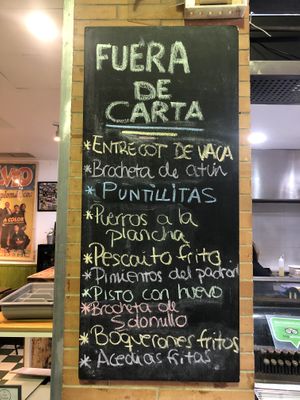 FUERA
DE
CARTA
*ENTRECOT DE VACA
*Brocheta de atún
*PUNTILLITAS
*Puerros a la
plancha
*Pescaito frito
*Pimientos del padrón
*Pisto con huevo
*Brocheta de
Solomillo
*Boquerones fritos
*Acedias fritas